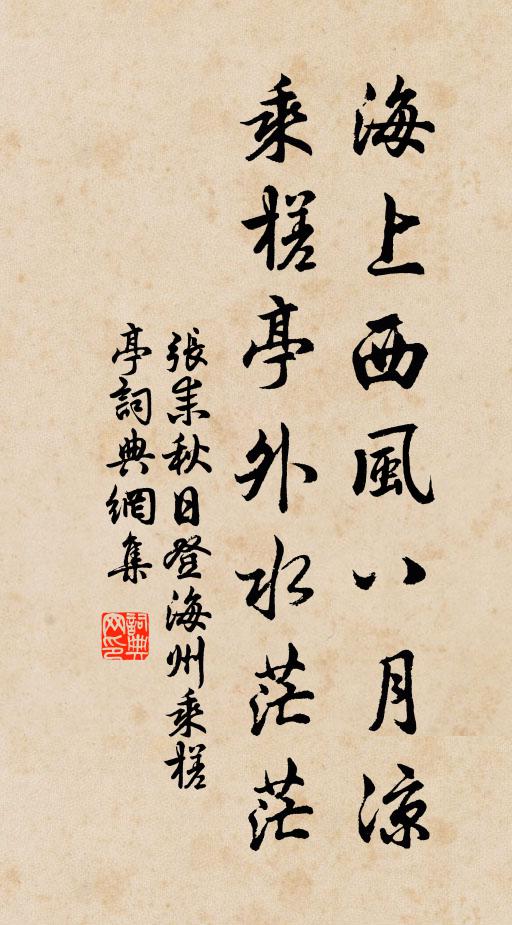 海上西風八月涼
乘槎亭外水茫茫
張耒秋日登海州乘槎
亭詞典網集
詞典网印